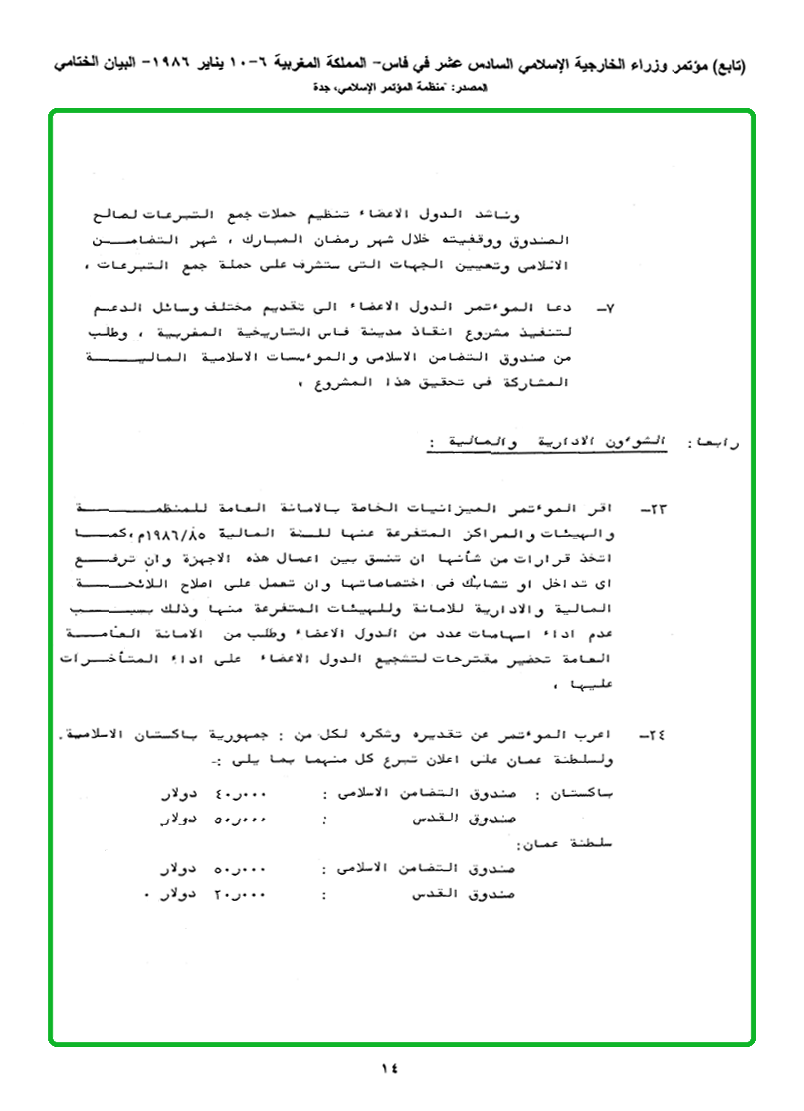 (تابع) مؤتمر وزراء الخارجية الإسلامي السادس عشر في فاس- المملكة المغربية ٦-١٠ يناير ١٩٨٦- البيان الختامي
المصدر: "منظمة المؤتمر الإسلامي، جدة
وناشد الدول الاعضاء تنظيم حملات جمع التبرعات لصالح
الصندوق ووقفيته خلال شهر رمضان المبارك ، شهر التضامن
الاسلامى وتعيين الجهات التى ستشرف على حملة جمع التبرعات ،
٧- دعا الموءتمر الدول الاعضاء الى تقديم مختلف وسائل الدعم
لتنفيذ مشروع انقاذ مدينة فاس التاريخية المغربية ، وطلب
من صندوق التضامن الاسلامى والموءسسات الاسلامية المالية
المشاركة فى تحقيق هذا المشروع ،
رابعا: الشوءون الادارية والمالية :
٢٣- اقر الموءتمر الميزانيات الخاصة بالامانة العامة للمنظمة
والهيئات والمراكز المتفرعة عنها للسنة المالية ١٩٨٦/٨٥م،كما
اتخذ قرارات من شأنها ان تنسق بين اعمال هذه الاجهزة وان ترفع
اى تداخل او تشابك فى اختصاصاتها وان تعمل على اصلاح اللائحة
المالية والادارية للامانة وللهيئات المتفرعة منها وذلك بسبب
عدم اداء اسهامات عدد من الدول الاعضاء وطلب من الامانة العامة
العامة تحضير مقترحات لتشجيع الدول الاعضاء على اداء المتأخرات
عليها ،
٢٤- اعرب الموءتمر عن تقديره وشكره لكل من : جمهورية باكستان الاسلامية.
ولسلطنة عمان على اعلان تبرع كل منهما بما يلى :-
باكستان : صندوق التضامن الاسلامى : ٤٠ر٠٠٠ دولار
صندوق القدس : ٥٠ر٠٠٠ دولار
سلطنة عمان:
صندوق التضامن الاسلامى : ٥٠ر٠٠٠ دولار
صندوق القدس : ٢٠ر٠٠٠ دولار ٠
١٤